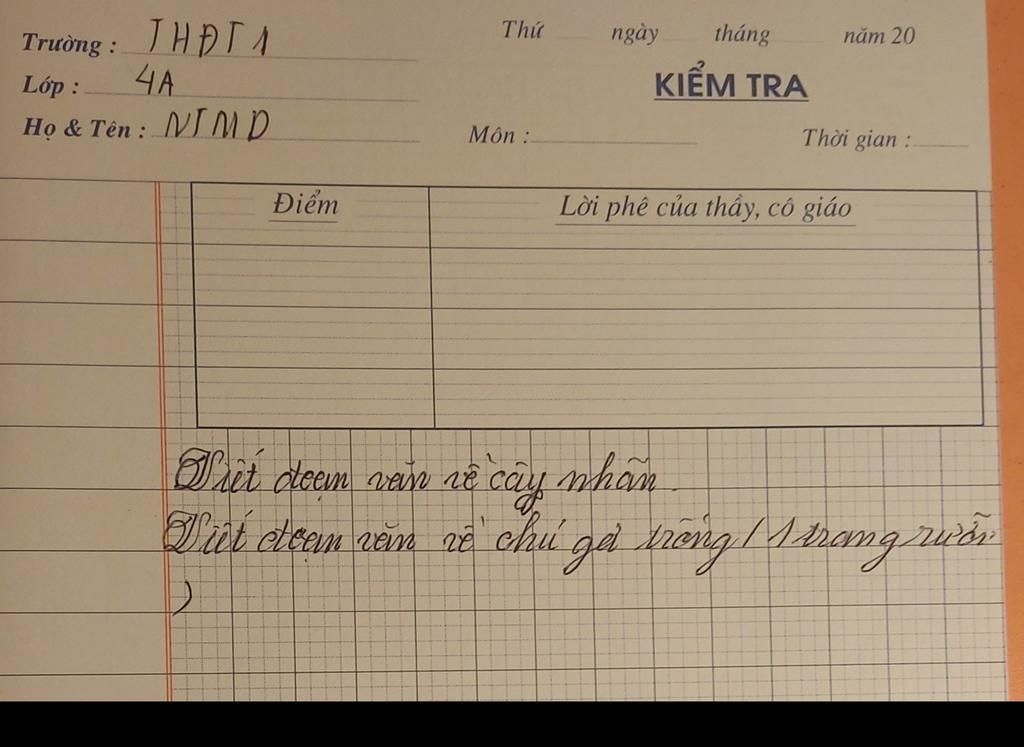 Trường : THĐT1
Thứ ngày tháng năm 20
Lớp : 4A
KIỂM TRA
Họ & Tên : NTMD
Môn : Thời gian :
Điểm
Lời phê của thầy, cô giáo
Viết đoạn văn về cây nhãn.
Viết đoạn văn về chú gà trống ( 1 trang rưỡi
)